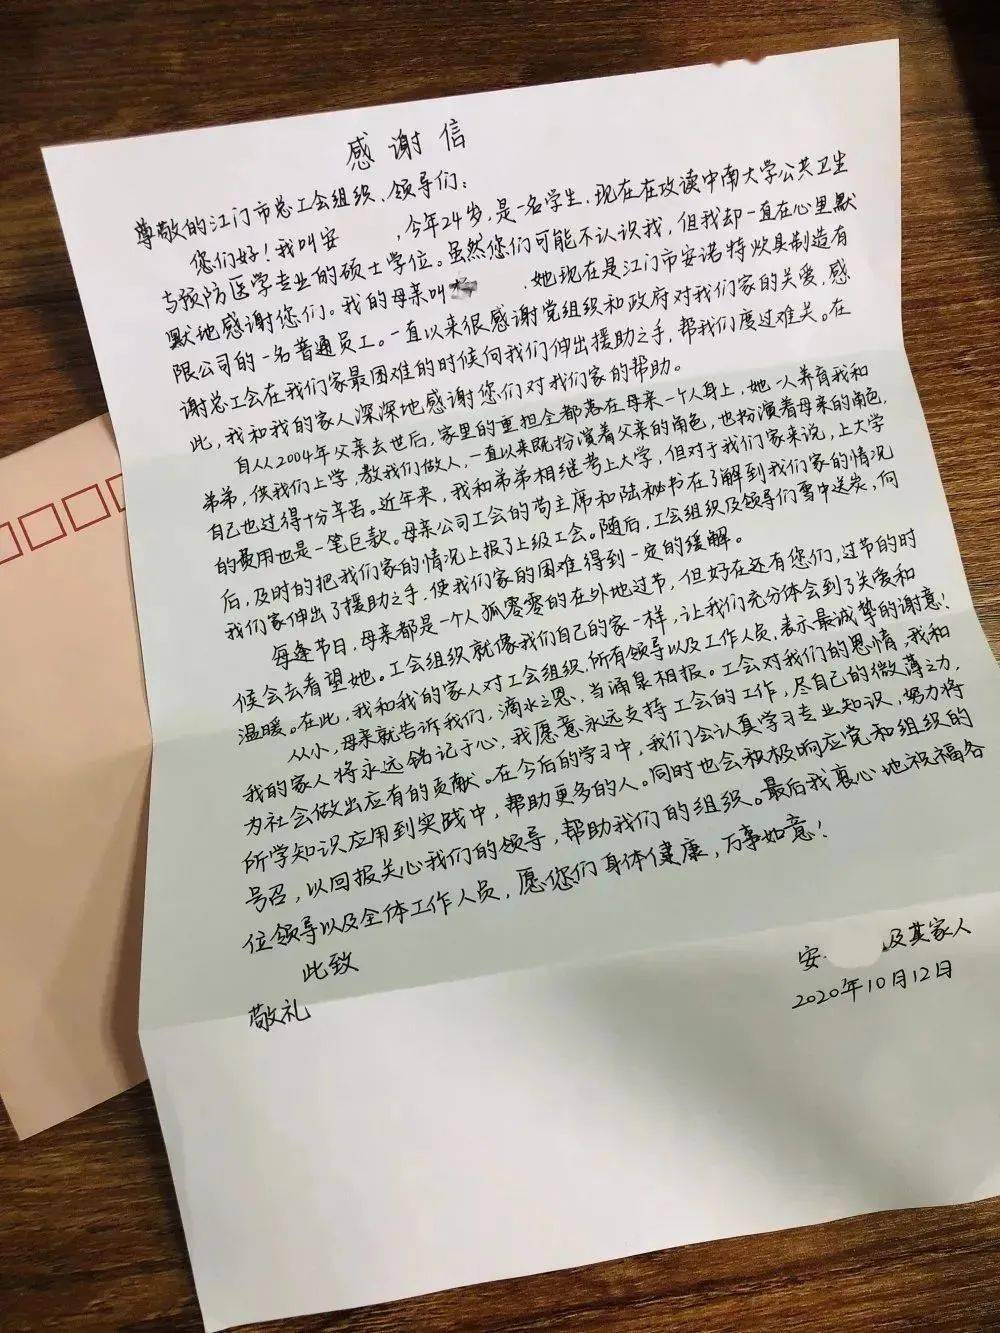 感谢信
尊敬的江门市总工会组织、领导们：
您们好！我叫安 ，今年24岁，是一名学生，现在在攻读中南大学公共卫生
与预防医学专业的硕士学位。虽然您们可能不认识我，但我却一直在心里默
默地感谢您们。我的母亲叫 ，她现在是江门市安诺特炊具制造有
限公司的一名普通员工。一直以来很感谢党组织和政府对我们家的关爱，感
谢总工会在我们家最困难的时候向我们伸出援助之手，帮我们度过难关。在
此，我和我的家人深深地感谢您们对我们家的帮助。
自从2004年父亲去世后，家里的重担全都落在母亲一个人身上，她一人养育我和
弟弟，供我们上学，教我们做人，一直以来既扮演着父亲的角色，也扮演着母亲的角色，
自己也过得十分辛苦。近年来，我和弟弟相继考上大学，但对于我们家来说，上大学
的费用也是一笔巨款。母亲公司工会的苟主席和陆秘书在了解到我们家的情况
后，及时的把我们家的情况上报了上级工会。随后，工会组织及领导们雪中送炭，向
我们家伸出了援助之手，使我们家的困难得到一定的缓解。
每逢节日，母亲都是一个人孤零零的在外地过节，但好在还有您们，过节的时
候会去看望她。工会组织就像我们自己的家一样，让我们充分体会到了关爱和
温暖。在此，我和我的家人对工会组织、所有领导以及工作人员，表示最诚挚的谢意！
从小，母亲就告诉我们，滴水之恩，当涌泉相报。工会对我们的恩情，我和
我的家人将永远铭记于心，我愿意永远支持工会的工作，尽自己的微薄之力，
为社会做出应有的贡献。在今后的学习中，我们会认真学习专业知识，努力将
所学知识应用到实践中，帮助更多的人。同时也会积极响应党和组织的
号召，以回报关心我们的领导，帮助我们的组织。最后我衷心地祝福各
位领导以及全体工作人员，愿您们身体健康，万事如意！
此致
敬礼
安 及其家人
2020年10月12日